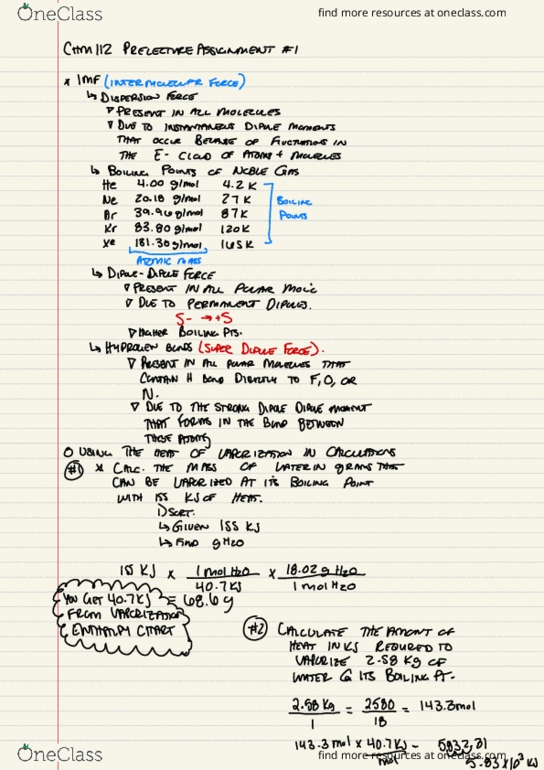 OneClass
find more resources at oneclass.com
CHM 112 PRELECTURE ASSIGNMENT #1
* IMF (INTERMOLECULAR FORCE)
↳ DISPERSION FORCE
▽ PRESENT IN ALL MOLECULES
▽ DUE TO INSTANTANEOUS DIPOLE MOMENTS
THAT OCCUR BECAUSE OF FLUCTUATIONS IN
THE E- CLOUD OF ATOMS + MOLECULES
↳ BOILING POINTS OF NOBLE GAS
He 4.00 g/mol 4.2 K
Ne 20.18 g/mol 27 K BOILING
Ar 39.96 g/mol 87 K POINTS
Kr 83.80 g/mol 120 K
Xe 131.30 g/mol 165 K
ATOMIC MASS
↳ DIPOLE-DIPOLE FORCE
▽ PRESENT IN ALL POLAR MOLC
▽ DUE TO PERMANENT DIPOLES.
S- → +S
▽ HIGHER BOILING PTS.
↳ HYDROGEN BONDS (SUPER DIPOLE FORCE).
▽ PRESENT IN ALL POLAR MOLECULES THAT
CONTAIN H BOND DIRECTLY TO F, O, OR
N.
▽ DUE TO THE STRONG DIPOLE DIPOLE MOMENT
THAT FORMS IN THE BOND BETWEEN
THESE ATOMS
O USING THE HEAT OF VAPORIZATION IN CALCULATIONS
#1 * CALC. THE MASS OF WATER IN GRAMS THAT
CAN BE VAPORIZED AT ITS BOILING POINT
WITH 155 KJ OF HEAT.
1) SORT.
↳ GIVEN 155 KJ
↳ FIND g H2O
155 KJ x 1 mol H2O x 18.02 g H2O
40.7 KJ 1 mol H2O
YOU GET 40.7 KJ = 68.6 g
FROM VAPORIZATION
ENTHALPY CHART
#2 CALCULATE THE AMOUNT OF
HEAT IN KJ REQUIRED TO
VAPORIZE 2.58 Kg OF
WATER @ ITS BOILING PT.
2.58 Kg = 2580 = 143.3 mol
1 18
143.3 mol x 40.7 KJ = 5832.31
mol 5.83 x 10³ KJ
OneClass
find more resources at oneclass.com